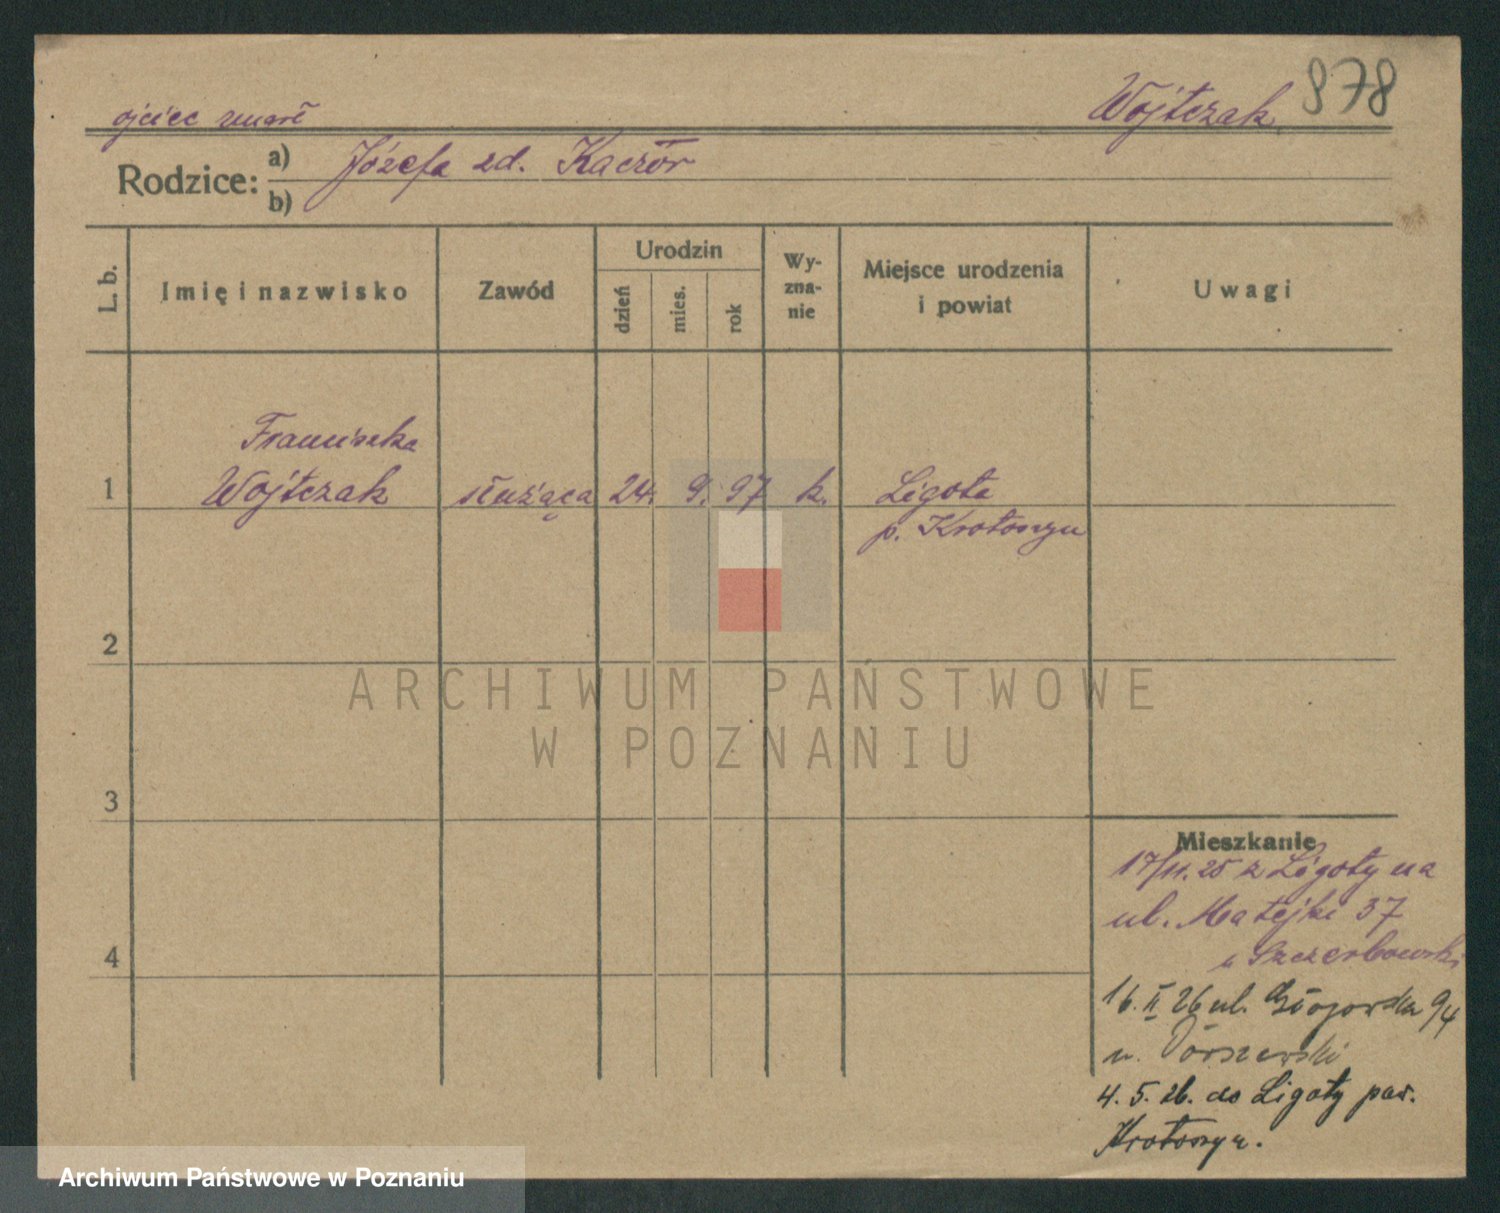 Wojtczak 978
ojciec zmarł
Rodzice:
a) Józefa zd. Kaczór
b)
L. b.
Imię i nazwisko
Zawód
Urodzin
dzień
mies.
rok
Wy-
zna-
nie
Miejsce urodzenia
i powiat
Uwagi
Franciszka
1 Wojtczak służąca 24. 9. 97 k. Ligota
p. Krotoszyn
2
3
4
Mieszkanie
17/11. 25 z Ligoty na
ul. Matejki 37
u Szczerbowski
16. II 26 ul. Głogowska 94
u.
4. 5. 26. do Ligoty pow.
Krotoszyn.
ARCHIWUM PAŃSTWOWE
W POZNANIU
Archiwum Państwowe w Poznaniu